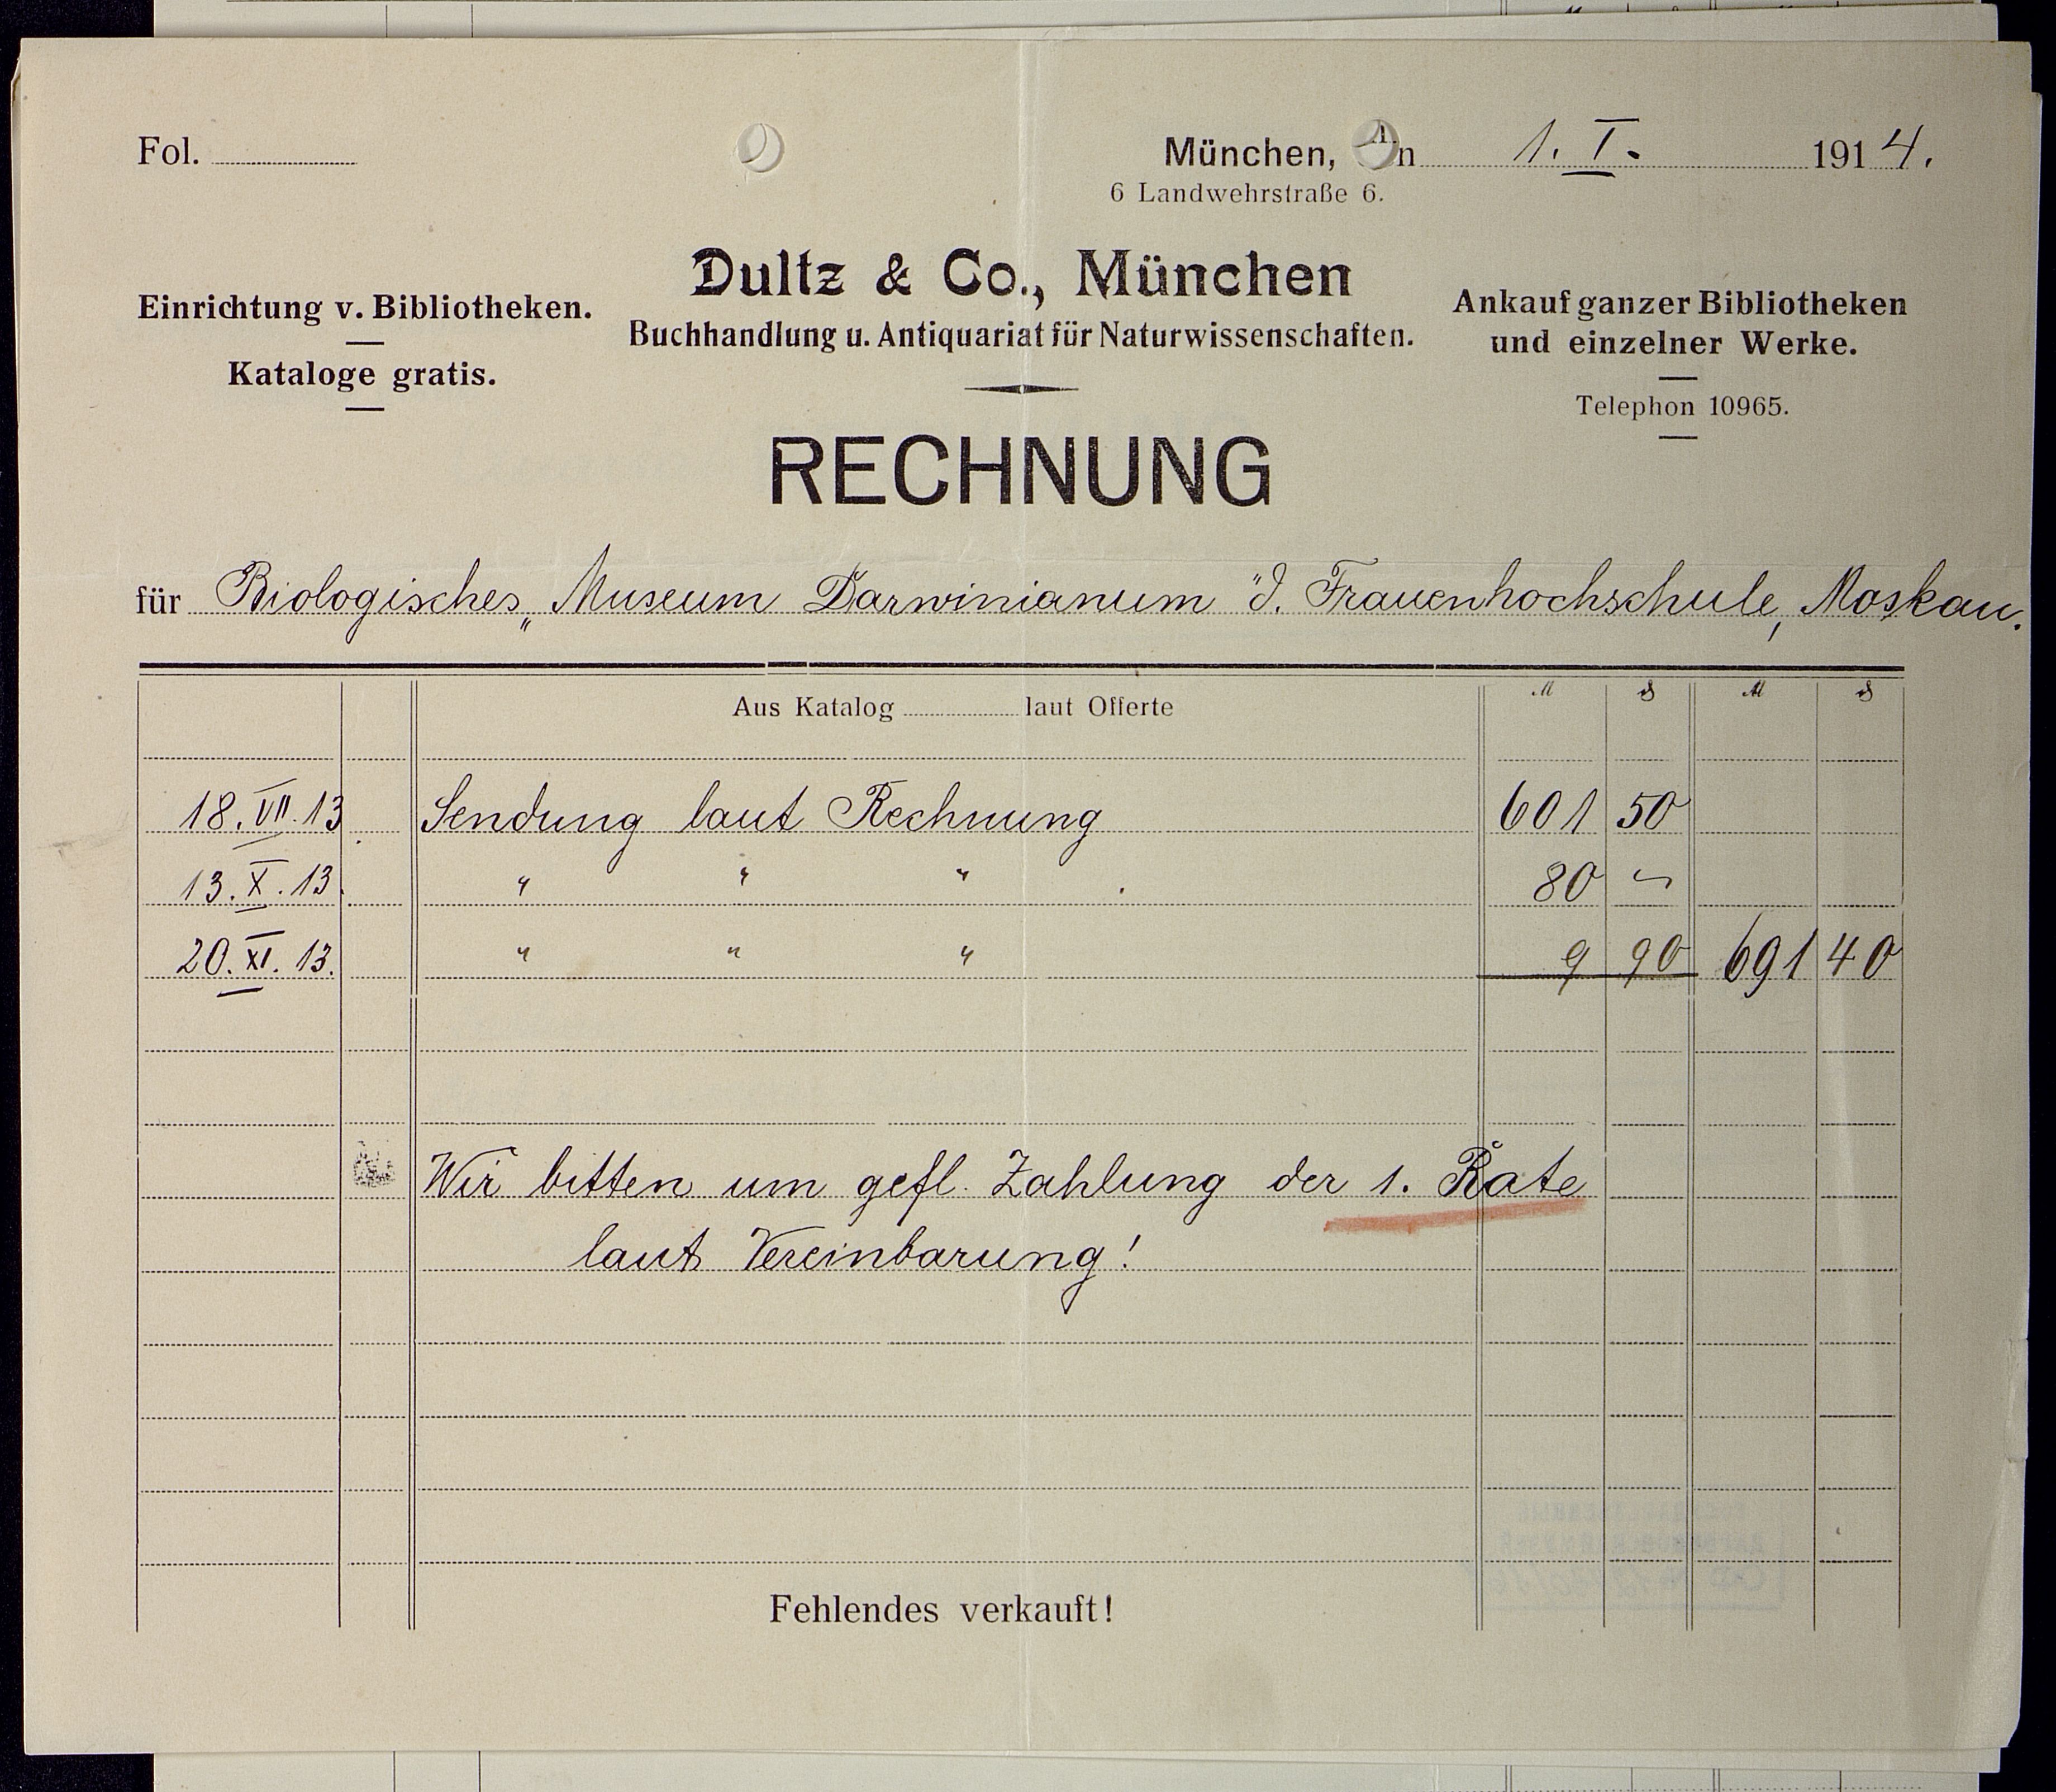 Fol.
München, den 1. I. 1914.
6 Landwehrstraße 6.
Dultz & Co., München
Buchhandlung u. Antiquariat für Naturwissenschaften.
Einrichtung v. Bibliotheken.
Kataloge gratis.
Ankauf ganzer Bibliotheken
und einzelner Werke.
Telephon 10965.
RECHNUNG
für Biologisches „Museum Darwinianum" d. Frauenhochschule, Moskau.
Aus Katalog laut Offerte ℳ ₰ ℳ ₰
18. VII. 13. Sendung laut Rechnung 601 50
13. X. 13. " " " 80 –
20. XI. 13. " " " 9 90 691 40
Wir bitten um gefl. Zahlung der 1. Rate
laut Vereinbarung!
Fehlendes verkauft!